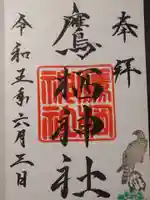 奉拝
鷹栖神社
令和五年六月三日